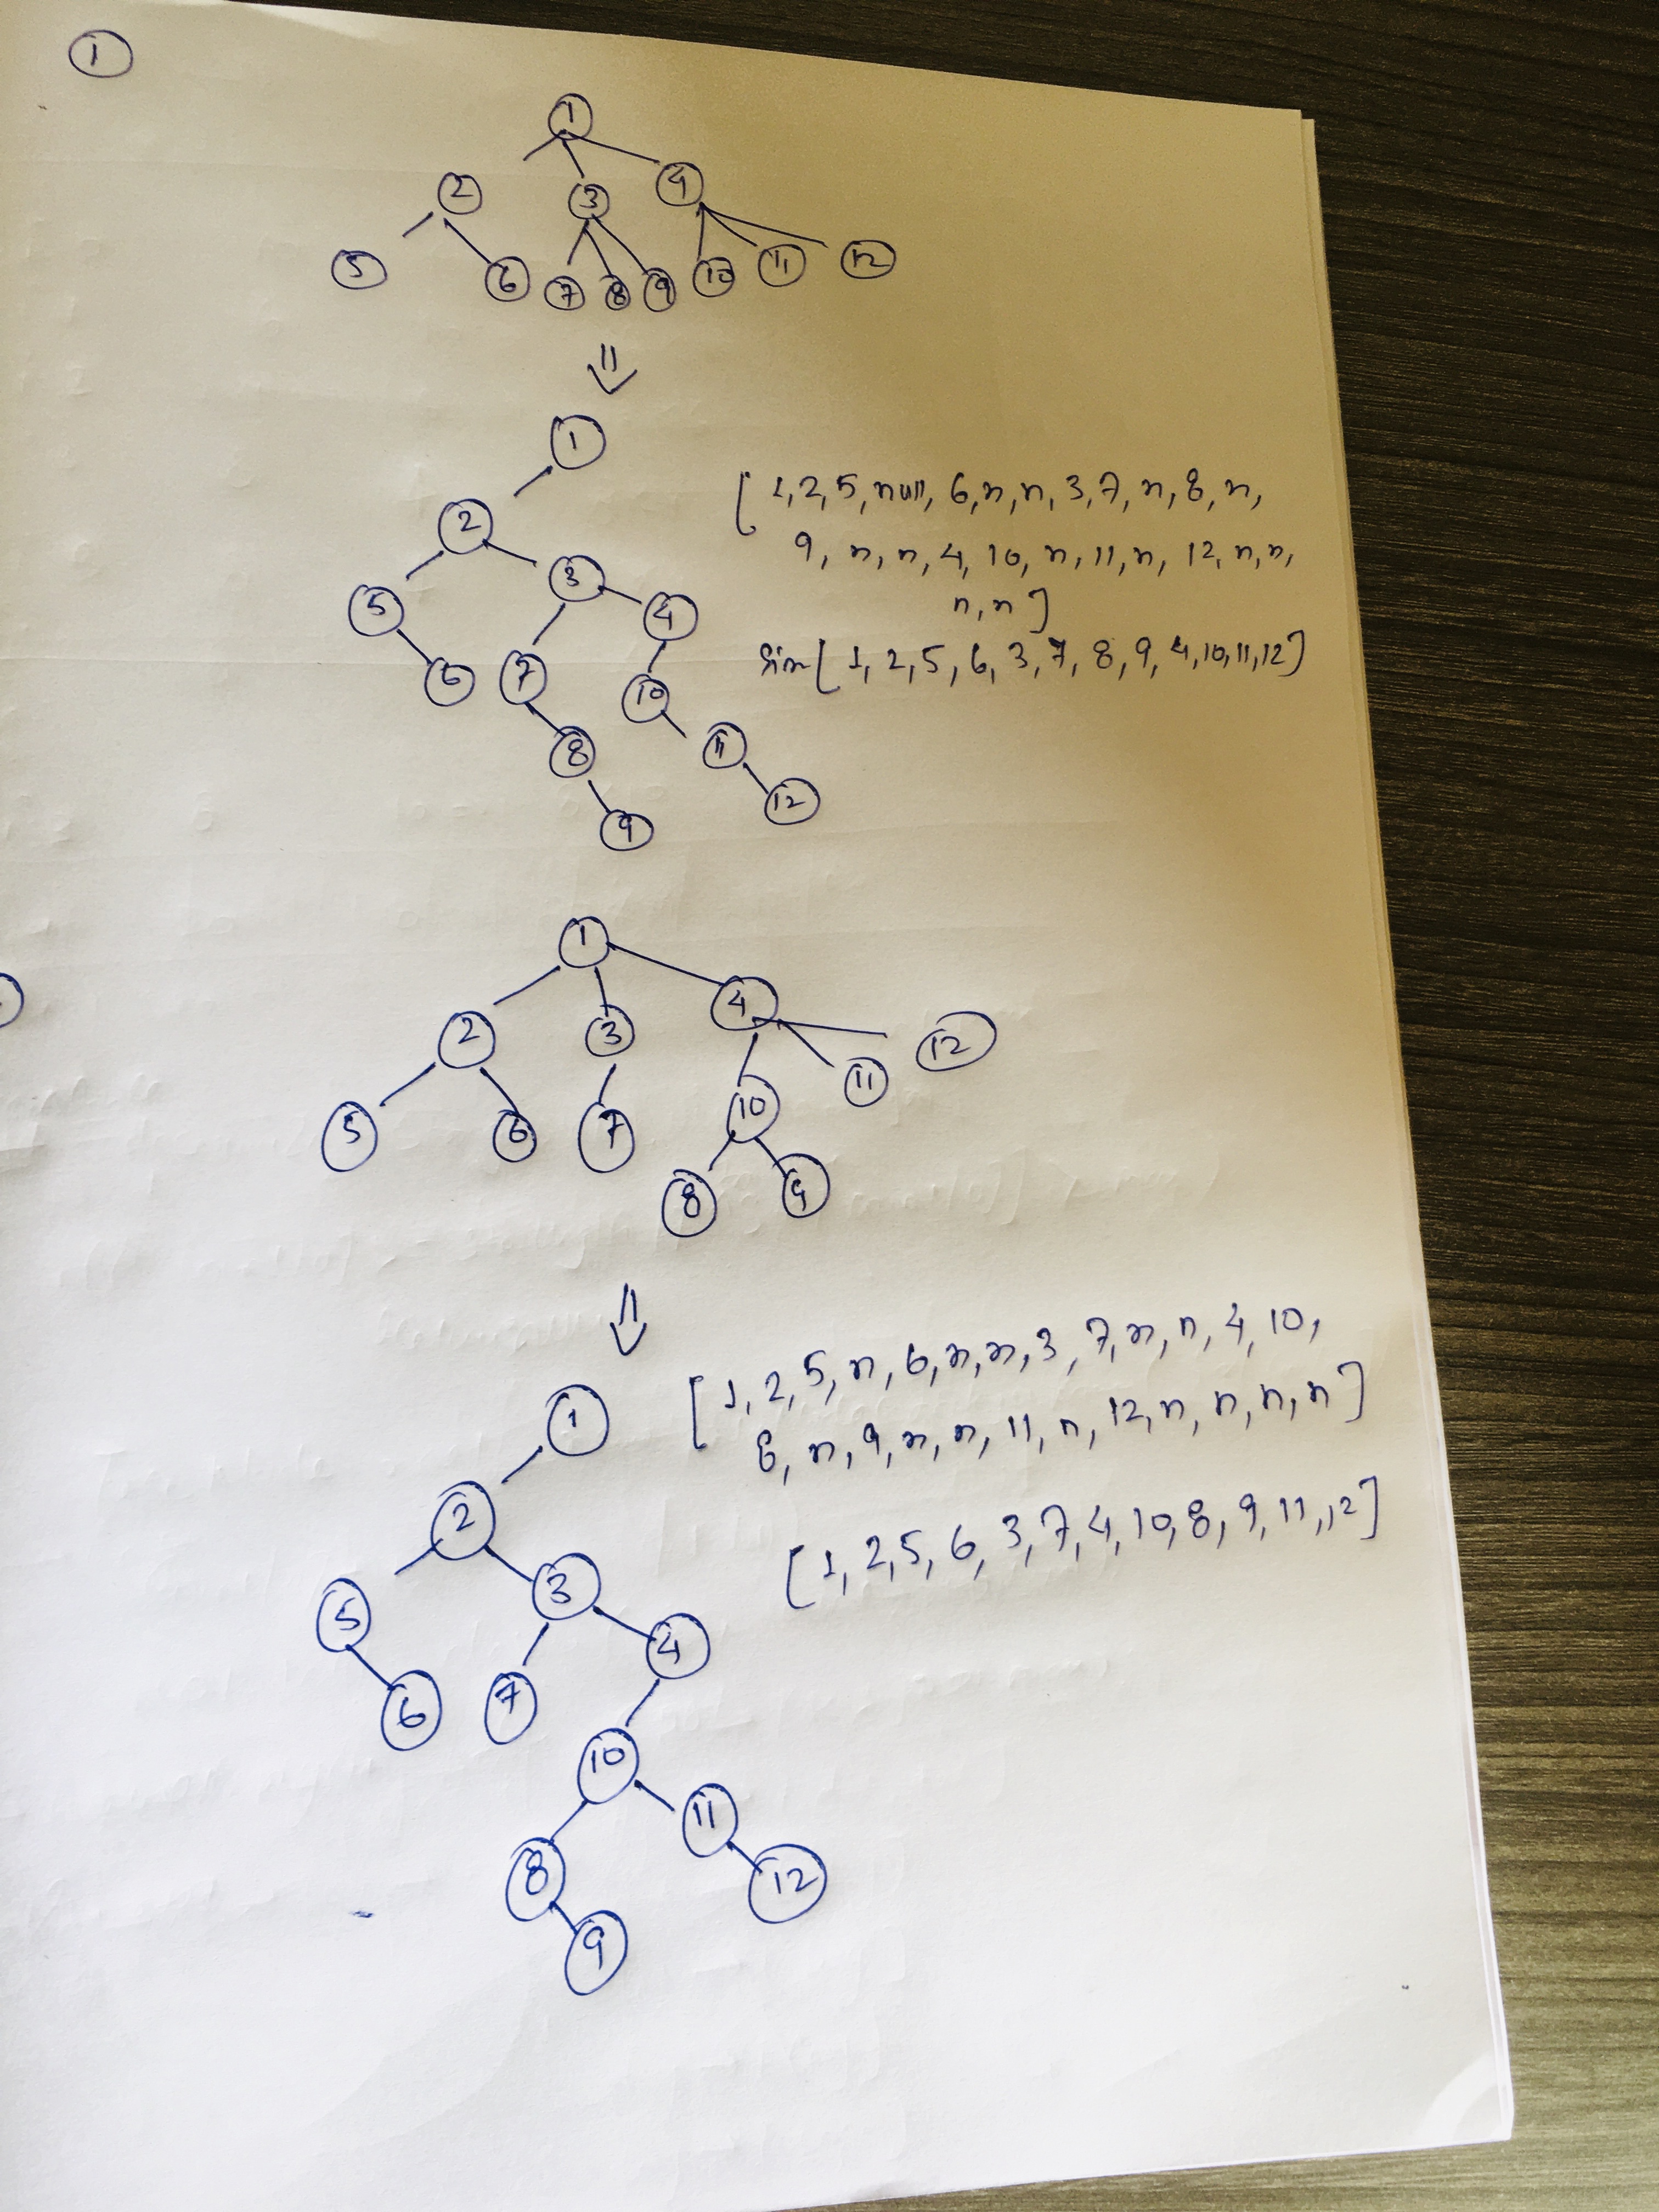 1
1
2 3 4
5 6 7 8 9 10 11 12
1
2
3
5 4
6 7 10
8 11
9 12
[1,2,5,null,6,n,n,3,7,n,8,n,
9,n,n,4,10,n,11,n,12,n,n,
n,n]
[1,2,5,6,3,7,8,9,4,10,11,12]
1
2 3 4
5 6 7 10 11 12
8 9
1
2
5 3
6 7 4
10
8 11
9 12
[1,2,5,n,6,n,n,3,7,n,n,4,10,
8,n,9,n,n,11,n,12,n,n,n,n]
[1,2,5,6,3,7,4,10,8,9,11,12]